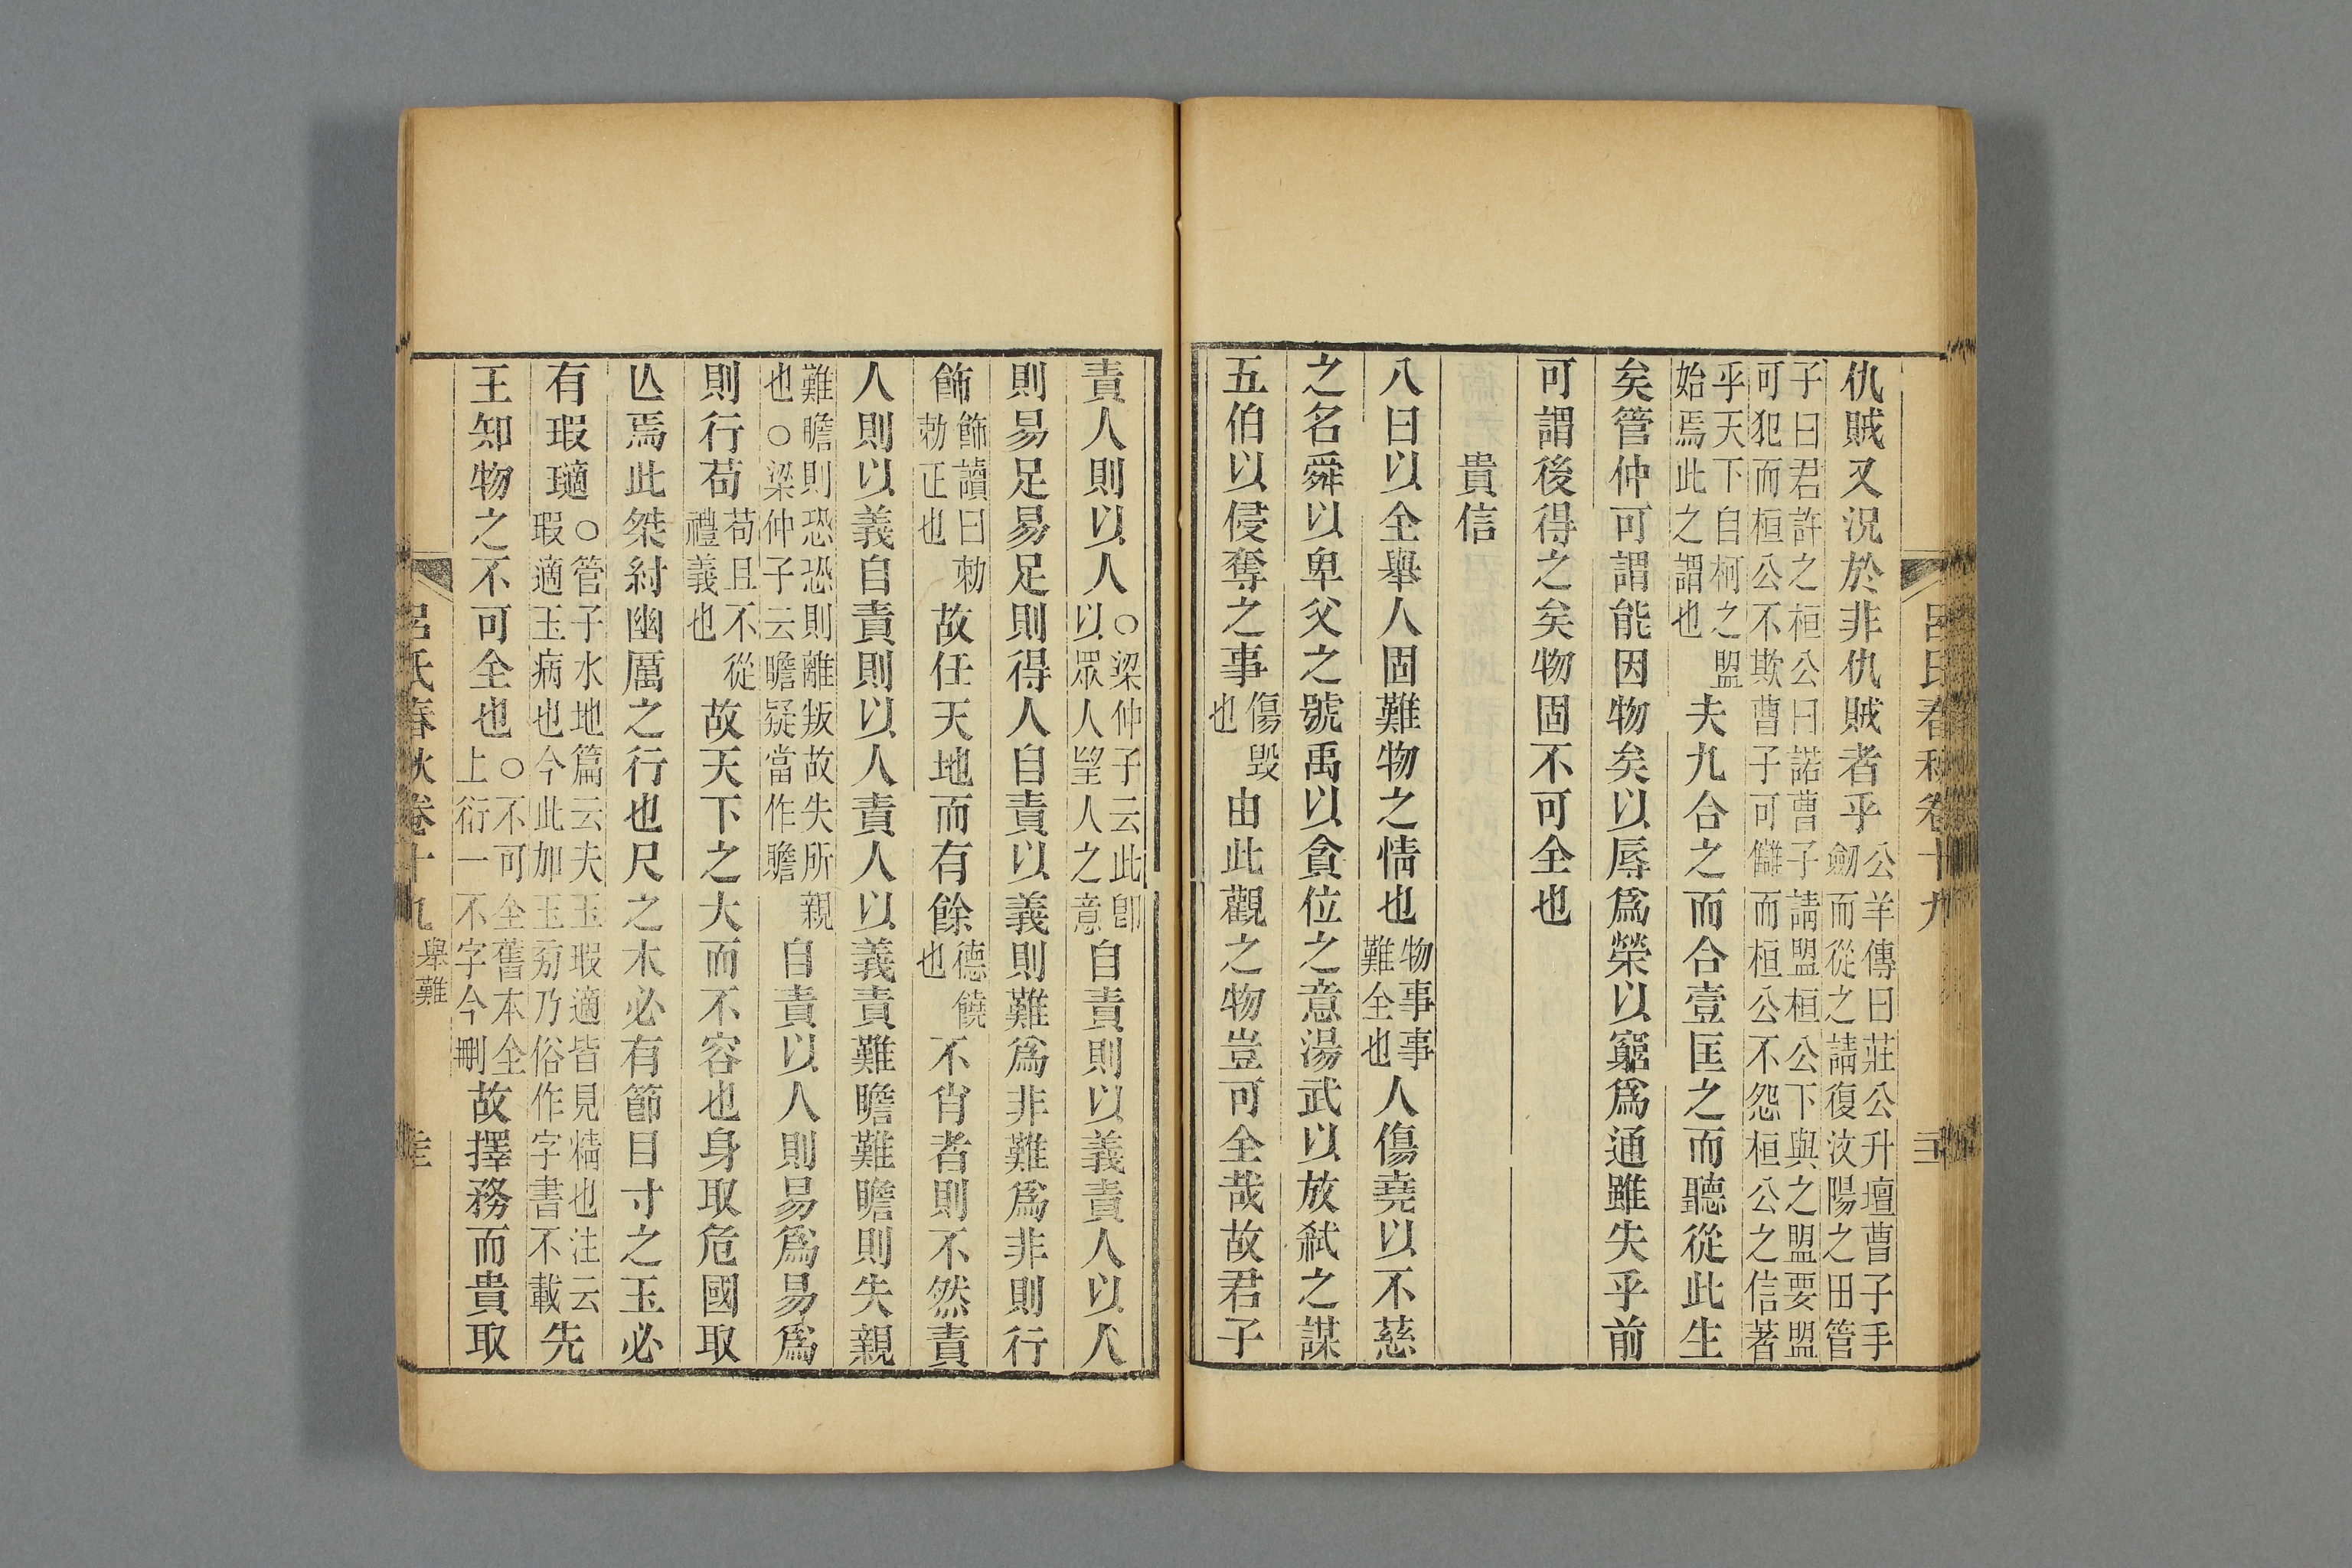 呂氏春秋卷十九
仇賊又況於非仇賊者乎公羊傳曰莊公升壇曹子手劒而從之請復汶陽之田管
子曰君許之桓公曰諾曹子請盟桓公下與之盟要盟可犯而桓公不欺曹子可讎而桓公不怨桓公之信著
乎天下自柯之盟始焉此之謂也夫九合之而合壹匡之而聽從此生
矣管仲可謂能因物矣以辱爲榮以窮爲通雖失乎前
可謂後得之矣物固不可全也
貴信
八曰以全舉人固難物之情也物事事難全也人傷堯以不慈
之名舜以卑父之號禹以貪位之意湯武以放弑之謀
五伯以侵奪之事傷毀也由此觀之物豈可全哉故君子
責人則以人○梁仲子云此卽以眾人望人之意自責則以義責人以人
則易足易足則得人自責以義則難爲非難爲非則行
飾飾讀曰勑勑正也故任天地而有餘德饒也不肖者則不然責
人則以義自責則以人責人以義責難瞻難瞻則失親
難瞻則恐恐則離叛故失所親也○梁仲子云瞻疑當作贍自責以人則易爲易爲
則行苟苟且不從禮義也故天下之大而不容也身取危國取
亾焉此桀紂幽厲之行也尺之木必有節目寸之玉必
有瑕瓋○管子水地篇云夫玉瑕適皆見精也注云瑕適玉病也今此加玉㫄乃俗作字書不載先
王知物之不可全也○不可全舊本全上衍一不字今刪故擇務而貴取
呂氏春秋卷十九 舉難